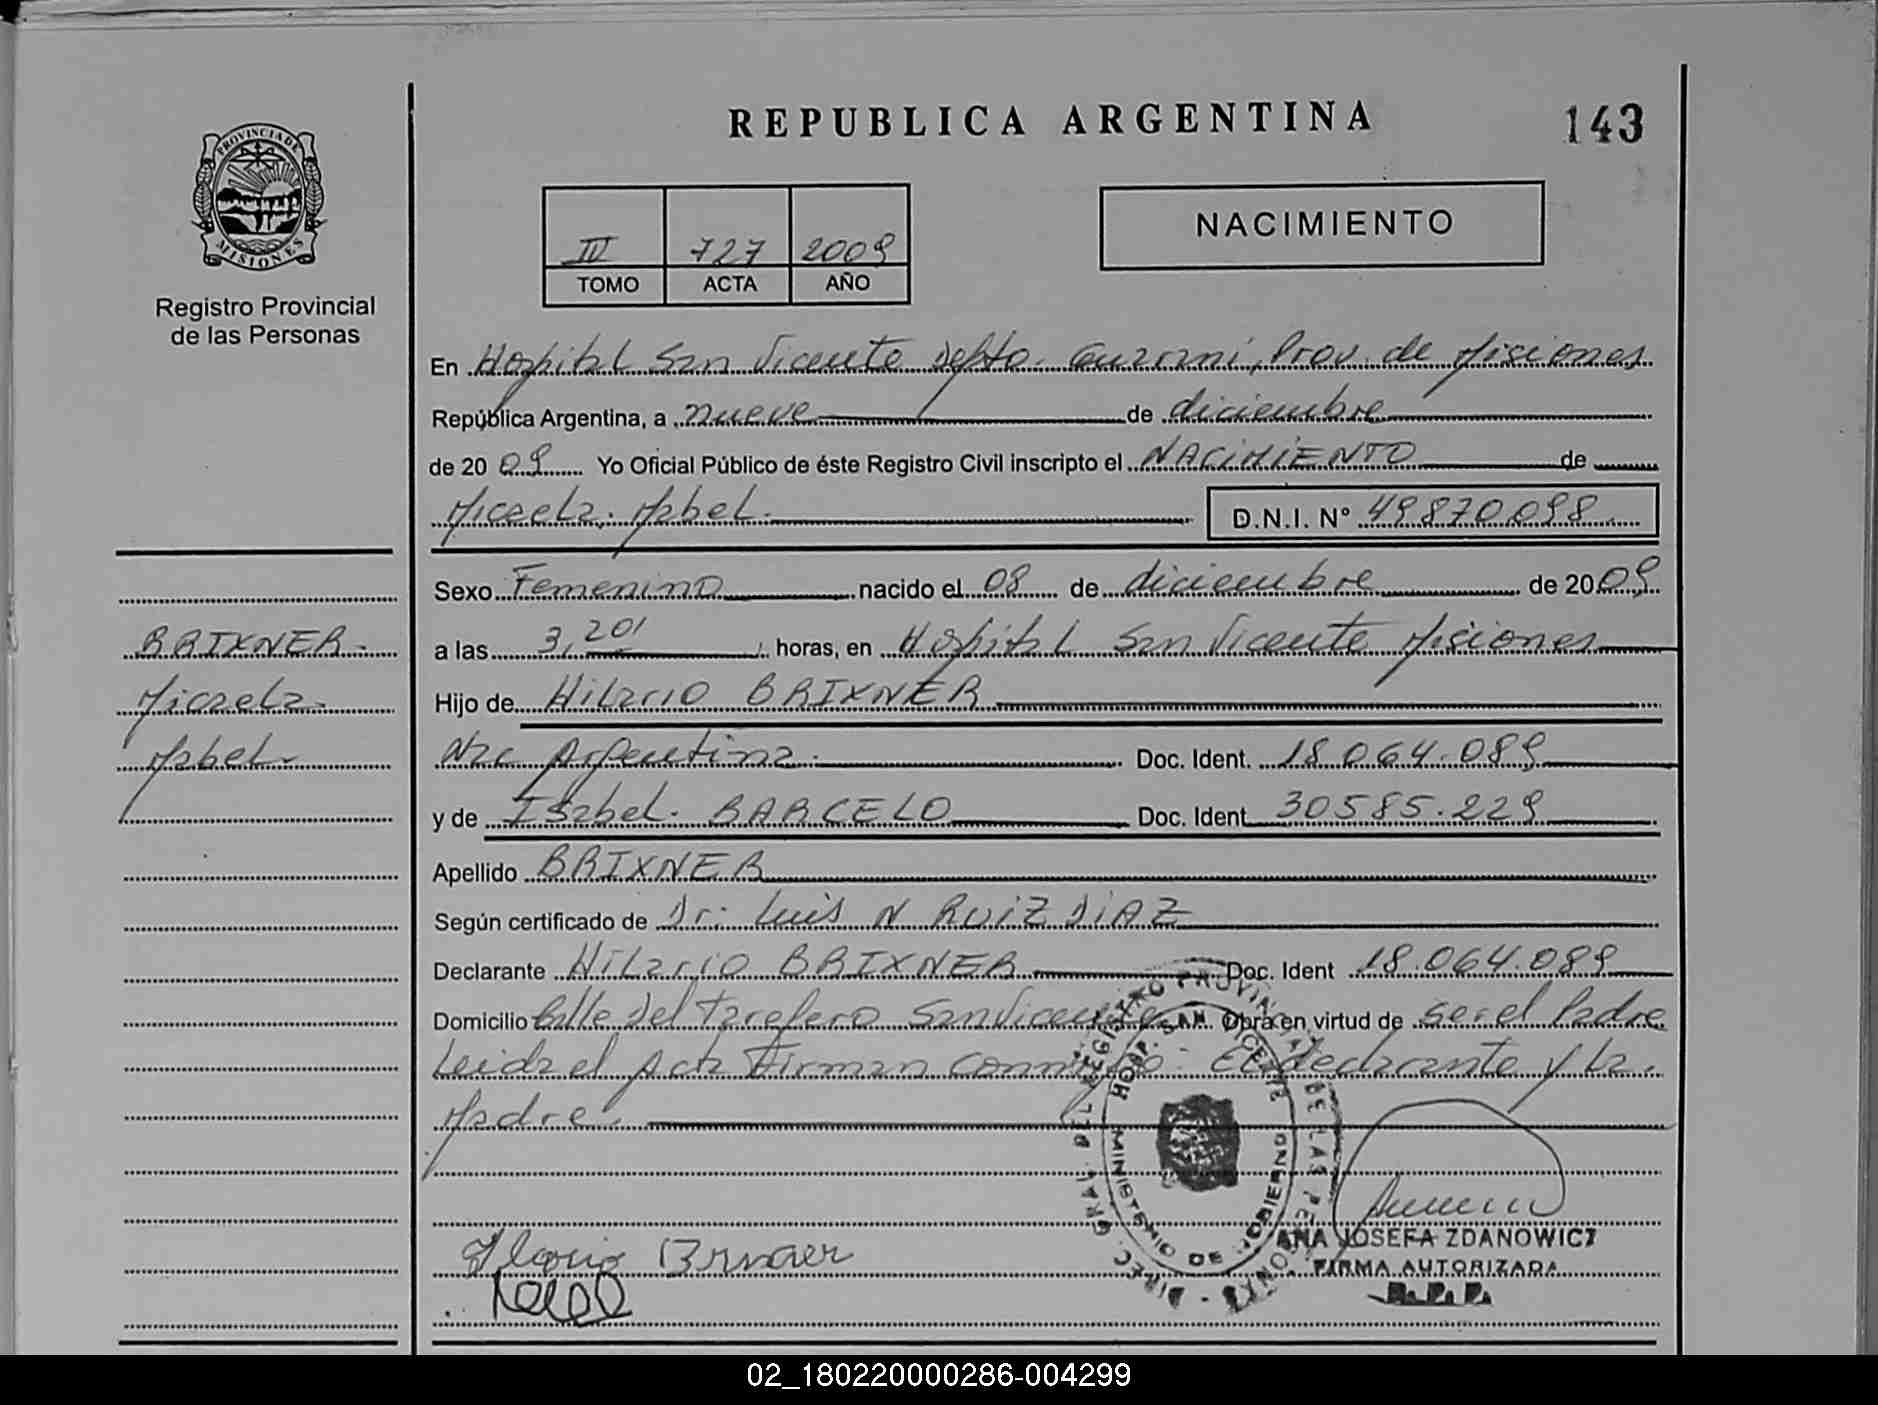 REPUBLICA ARGENTINA
143
PROVINCIA DE MISIONES
Registro Provincial
de las Personas
IV 727 2009
TOMO ACTA AÑO
NACIMIENTO
En Hospital San Vicente Depto. Guarani, Prov. de Misiones
República Argentina, a nueve de diciembre
de 20 09 Yo Oficial Público de éste Registro Civil inscripto el NACIMIENTO de
Micaela Mabel. D.N.I. N° 49870098
Sexo Femenino nacido el 08 de diciembre de 2009
a las 3,20' horas, en Hospital San Vicente Misiones
Hijo de Hilario BRIXNER
Nac Argentina. Doc. Ident. 18.064.089
y de Isabel. BARCELO Doc. Ident 30585.229
Apellido BRIXNER
Según certificado de Dr: Luis N RUIZ DIAZ
Declarante Hilario BRIXNER Doc. Ident 18.064.089
Domicilio Calle del Tarefero San Vicente Obra en virtud de ser el Padre
Leida el Acta Firman conmigo: El declarante y la
Madre.
BRIXNER
Micaela
Mabel
DIREC. GRAL. DEL REGISTRO PROVINCIAL DE LAS PERSONAS
HOSP. SAN VICENTE
MINISTERIO DE GOBIERNO
ANA JOSEFA ZDANOWICZ
FIRMA AUTORIZADA
R.P.P.
02_180220000286-004299